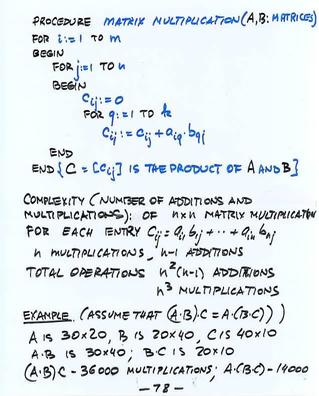 PROCEDURE MATRIX MULTIPLICATION (A,B: MATRICES)
FOR i:=1 TO m
BEGIN
FOR j:=1 TO n
BEGIN
Cij:=0
FOR q:=1 TO k
Cij := Cij + aiq·bqj
END
END {C = [Cij] IS THE PRODUCT OF A AND B}
COMPLEXITY (NUMBER OF ADDITIONS AND
MULTIPLICATIONS): OF n×n MATRIX MULTIPLICATION
FOR EACH ENTRY Cij = ai1 b1j + ·· + ain bnj
n MULTIPLICATIONS, n-1 ADDITIONS
TOTAL OPERATIONS n²(n-1) ADDITIONS
n³ MULTIPLICATIONS
EXAMPLE (ASSUME THAT (A·B)·C = A·(B·C))
A IS 30×20, B IS 20×40, C IS 40×10
A·B IS 30×40; B·C IS 20×10
(A·B)·C - 36000 MULTIPLICATIONS; A·(B·C) - 14000
— 78 —